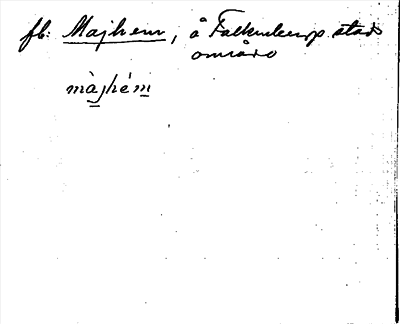 fb: Majhem, å Falkenbergs stads
område
màjhém